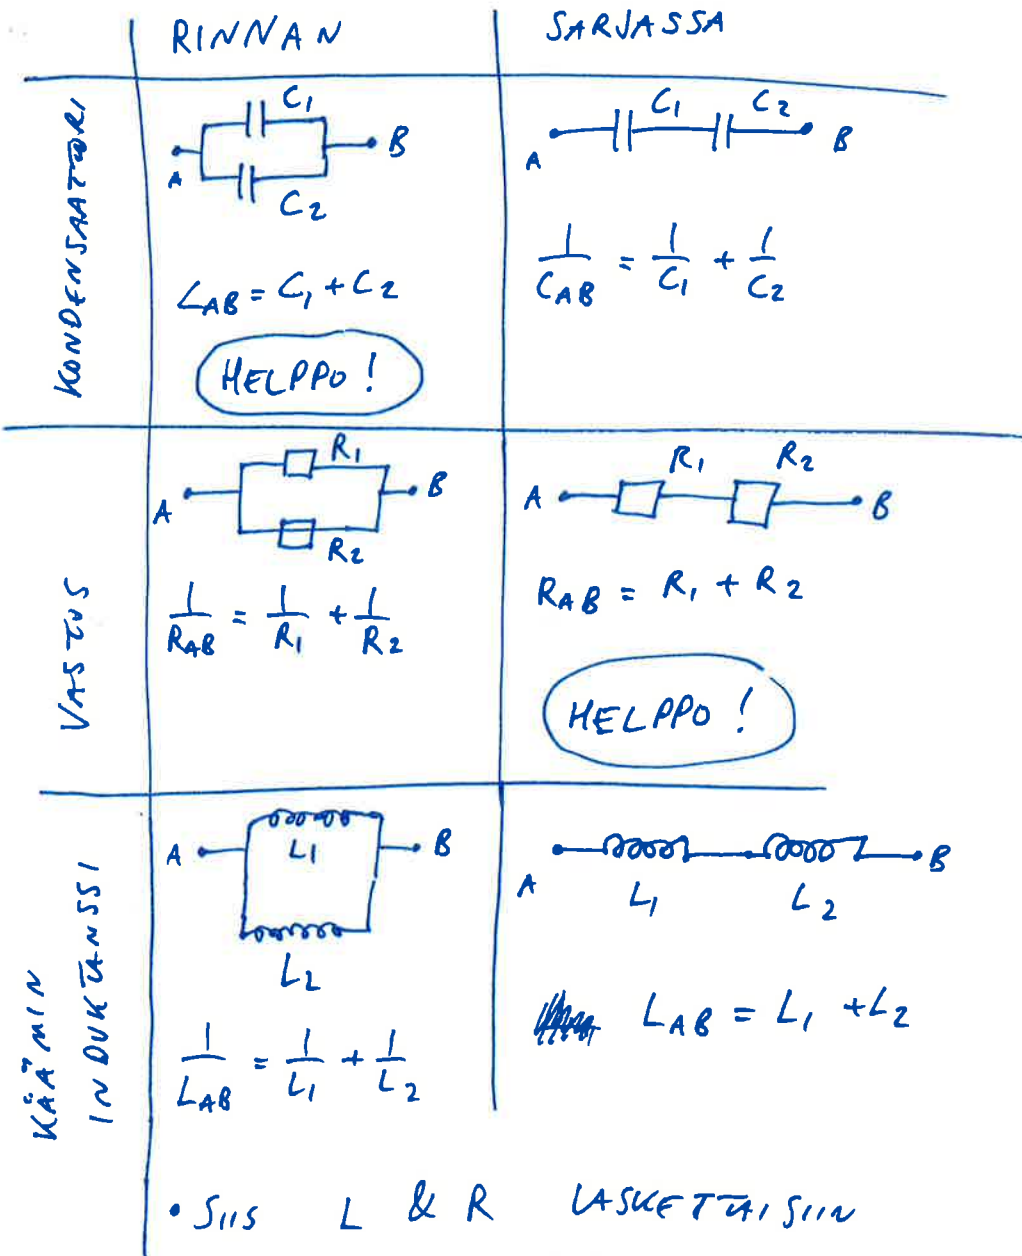 RINNAN
SARJASSA
KONDENSAATTORI
C1
A
B
C2
CAB = C1 + C2
HELPPO!
C1 C2
A
B
1/CAB = 1/C1 + 1/C2
VASTUS
R1
A
B
R2
1/RAB = 1/R1 + 1/R2
R1 R2
A
B
RAB = R1 + R2
HELPPO!
KÄÄMIN
INDUKTANSSI
A
L1
B
L2
1/LAB = 1/L1 + 1/L2
A
B
L1 L2
LAB = L1 + L2
• SIIS L & R LASKETTAISIIN